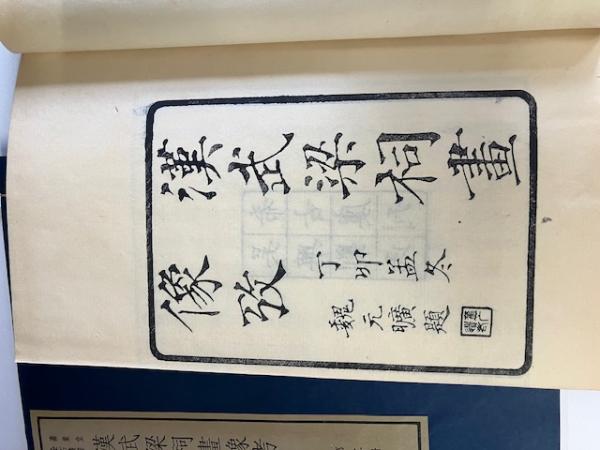 漢武梁祠畫
像攷
丁卯孟冬
魏元曠題
漢武梁祠畫像考